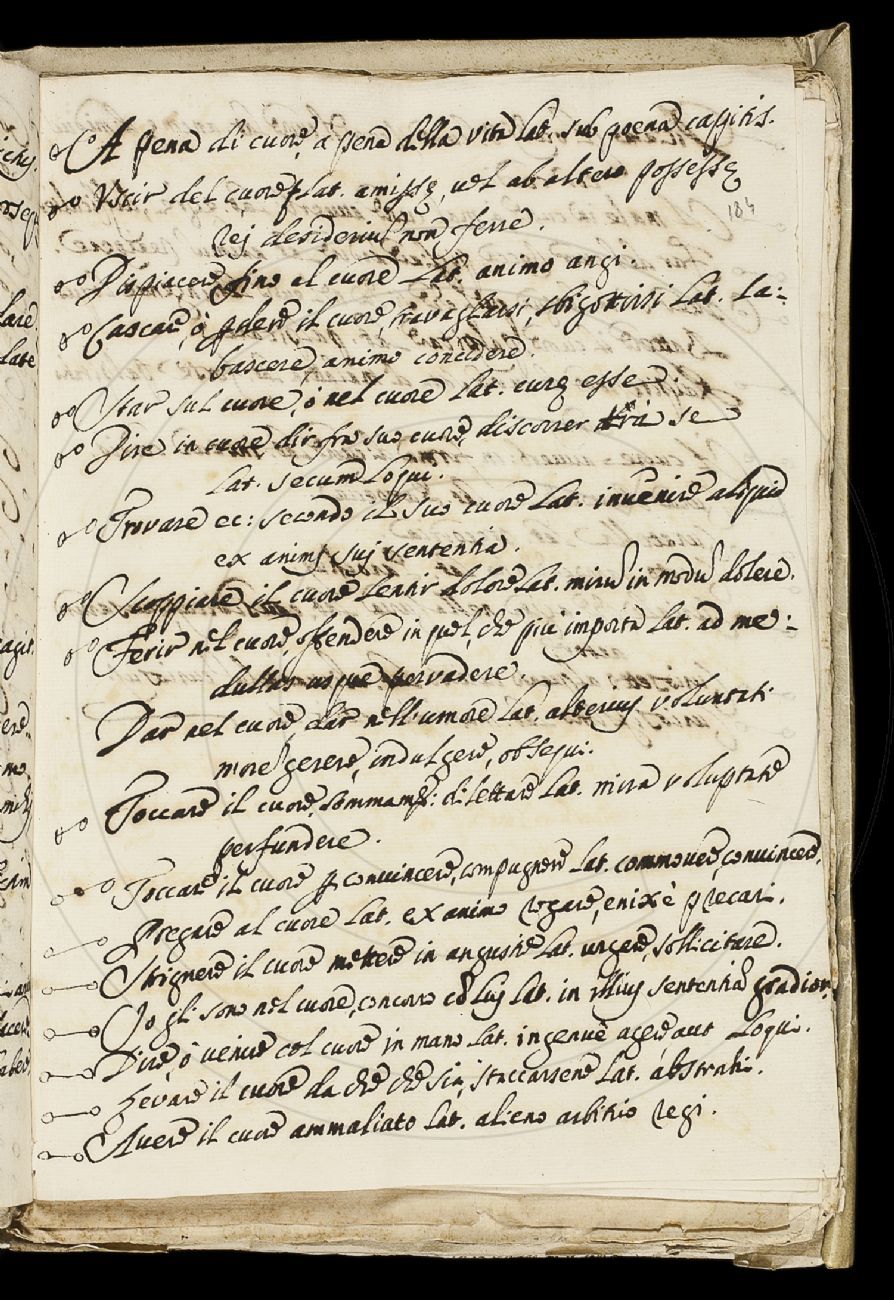 A pena di cuore, a pena della vita Lat. sub poena capitis.
184
Uscir del cuore Lat. amissę, vel ab altero possessę
rej desideriu non ferre.
Dispiacere fino al cuore Lat. animo angi.
Cascare, ò pdere il cuore, travagliarsi, sbigottirsi Lat. La=
bascere, animo concidere.
Star sul cuore, ò nel cuore Lat. curę esse.
Dire in cuore, dir frà suo cuore, discorrer trà se
Lat. secum Loqui.
Trovare ec: secondo il suo cuore Lat. invenire aliquid
ex animj suj sententia.
Scoppiare il cuore sentir dolore Lat. miru in modu dolere.
Ferir nel cuore, offendere in quel, che più importa Lat. ad me=
dullas usque pervadere.
Dar nel cuore, dar nell'umore Lat. alterius voluntati
more gerere, indulgere, obsequi.
Toccare il cuore, sommamte: dilettare Lat. mira voluptate
perfundere.
Toccare il cuore p convincere, compugnere Lat. commovere, convincere.
Pregare al cuore Lat. ex animo rogare, enixè precari.
Strignere il cuore mettere in angustie Lat. urgere, sollicitare.
Io gli sono nel cuore, concorro co Luj Lat. in illius sententia gradior.
Dire, ò venire col cuore in mano Lat. ingenuè agere aut Loqui.
Levare il cuore da che che sia, staccarsene Lat. abstrahi.
Avere il cuore ammaliato Lat. alieno arbitrio regi.